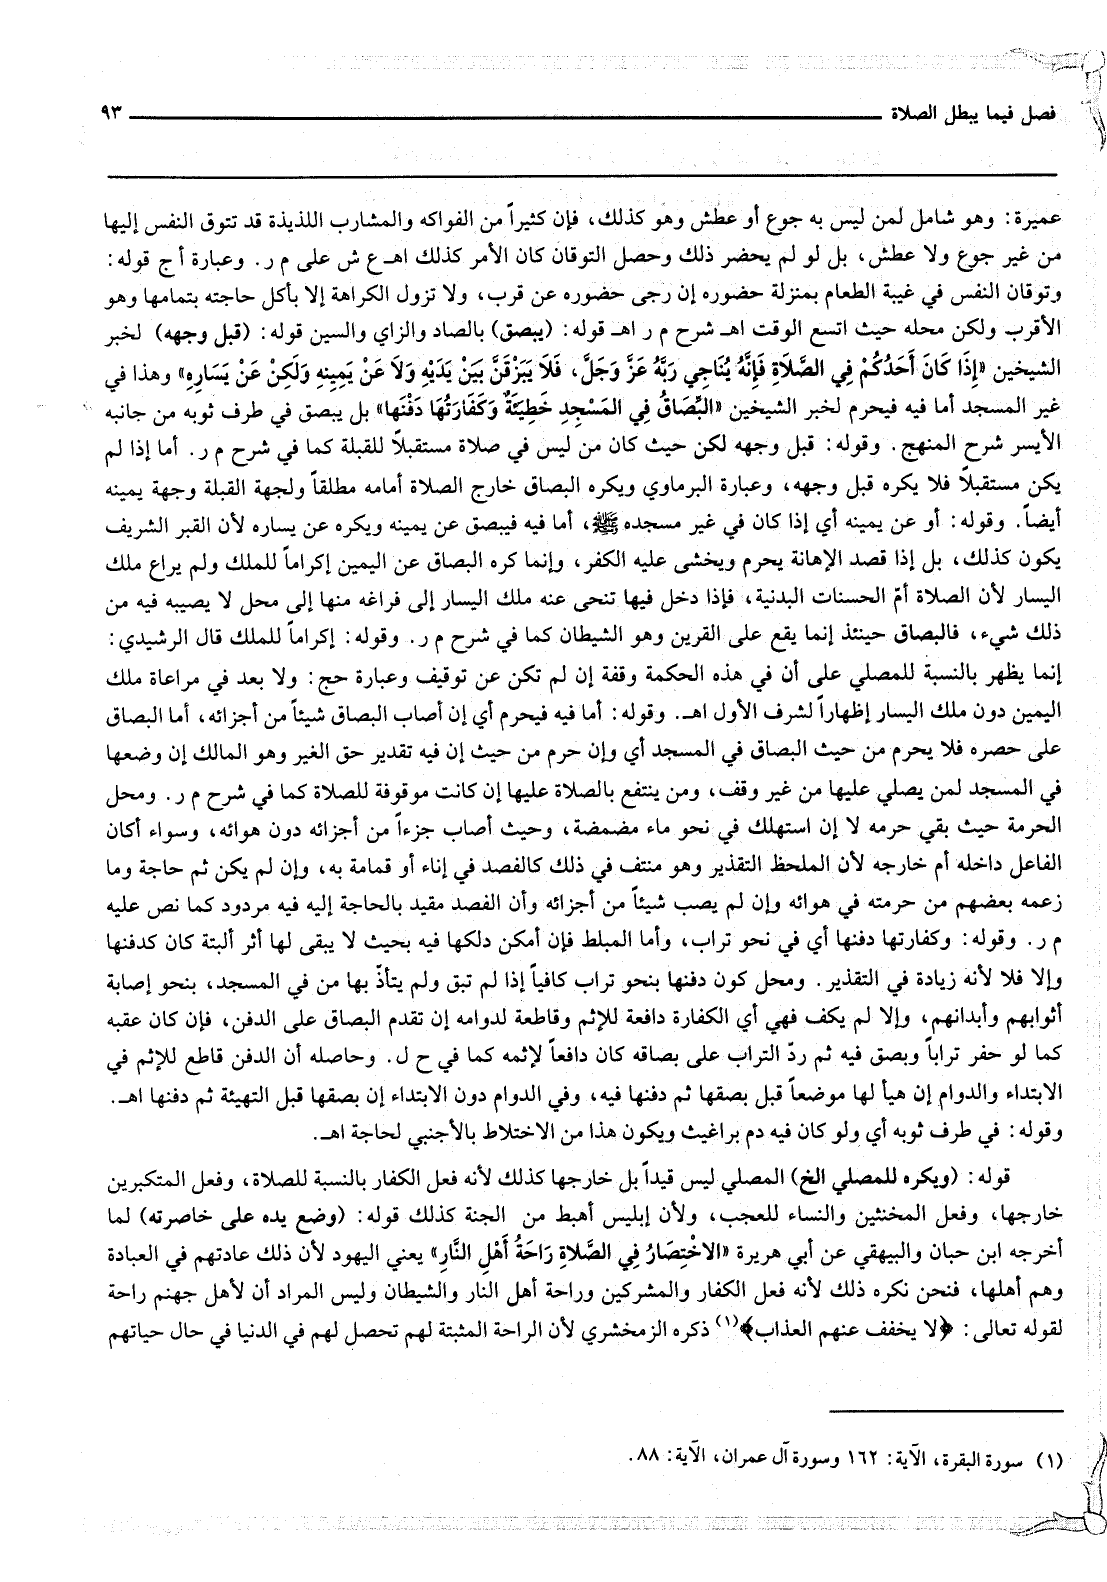 فصل فيما يبطل الصلاة ٩٣
عميرة: وهو شامل لمن ليس به جوع أو عطش وهو كذلك، فإن كثيراً من الفواكه والمشارب اللذيذة قد تتوق النفس إليها
من غير جوع ولا عطش، بل لو لم يحضر ذلك وحصل التوقان كان الأمر كذلك اهـ ع ش على م ر. وعبارة أ ج قوله:
وتوقان النفس في غيبة الطعام بمنزلة حضوره إن رجى حضوره عن قرب، ولا تزول الكراهة إلا بأكل حاجته بتمامها وهو
الأقرب ولكن محله حيث اتسع الوقت اهـ شرح م ر اهـ قوله: (يبصق) بالصاد والزاي والسين قوله: (قبل وجهه) لخبر
الشيخين «إِذَا كَانَ أَحَدُكُمْ فِي الصَّلَاةِ فَإِنَّهُ يُنَاجِي رَبَّهُ عَزَّ وَجَلَّ، فَلَا يَبَزْقَنَّ بَيْنَ يَدَيْهِ وَلَا عَنْ يَمِينِهِ وَلَكِنْ عَنْ يَسَارِهِ» وهذا في
غير المسجد أما فيه فيحرم لخبر الشيخين «البُصَاقُ فِي المَسْجِدِ خَطِيئَةٌ وَكَفَارَتُهَا دَفْنَها» بل يبصق في طرف ثوبه من جانبه
الأيسر شرح المنهج. وقوله: قبل وجهه لكن حيث كان من ليس في صلاة مستقبلاً للقبلة كما في شرح م ر. أما إذا لم
يكن مستقبلاً فلا يكره قبل وجهه، وعبارة البرماوي ويكره البصاق خارج الصلاة أمامه مطلقاً ولجهة القبلة وجهة يمينه
أيضاً. وقوله: أو عن يمينه أي إذا كان في غير مسجده ﷺ، أما فيه فيبصق عن يمينه ويكره عن يساره لأن القبر الشريف
يكون كذلك، بل إذا قصد الإهانة يحرم ويخشى عليه الكفر، وإنما كره البصاق عن اليمين إكراماً للملك ولم يراع ملك
اليسار لأن الصلاة أمّ الحسنات البدنية، فإذا دخل فيها تنحى عنه ملك اليسار إلى فراغه منها إلى محل لا يصيبه فيه من
ذلك شيء، فالبصاق حينئذ إنما يقع على القرين وهو الشيطان كما في شرح م ر. وقوله: إكراماً للملك قال الرشيدي:
إنما يظهر بالنسبة للمصلي على أن في هذه الحكمة وقفة إن لم تكن عن توقيف وعبارة حج: ولا بعد في مراعاة ملك
اليمين دون ملك اليسار إظهاراً لشرف الأول اهـ. وقوله: أما فيه فيحرم أي إن أصاب البصاق شيئاً من أجزائه، أما البصاق
على حصره فلا يحرم من حيث البصاق في المسجد أي وإن حرم من حيث إن فيه تقدير حق الغير وهو المالك إن وضعها
في المسجد لمن يصلي عليها من غير وقف، ومن ينتفع بالصلاة عليها إن كانت موقوفة للصلاة كما في شرح م ر. ومحل
الحرمة حيث بقي حرمه لا إن استهلك في نحو ماء مضمضة، وحيث أصاب جزءاً من أجزائه دون هوائه، وسواء أكان
الفاعل داخله أم خارجه لأن الملحظ التقذير وهو منتف في ذلك كالفصد في إناء أو قمامة به، وإن لم يكن ثم حاجة وما
زعمه بعضهم من حرمته في هوائه وإن لم يصب شيئاً من أجزائه وأن الفصد مقيد بالحاجة إليه فيه مردود كما نص عليه
م ر. وقوله: وكفارتها دفنها أي في نحو تراب، وأما المبلط فإن أمكن دلكها فيه بحيث لا يبقى لها أثر ألبتة كان كدفنها
وإلا فلا لأنه زيادة في التقذير. ومحل كون دفنها بنحو تراب كافياً إذا لم تبق ولم يتأذّ بها من في المسجد، بنحو إصابة
أثوابهم وأبدانهم، وإلا لم يكف فهي أي الكفارة دافعة للإثم وقاطعة لدوامه إن تقدم البصاق على الدفن، فإن كان عقبه
كما لو حفر تراباً وبصق فيه ثم ردّ التراب على بصاقه كان دافعاً لإثمه كما في ح ل. وحاصله أن الدفن قاطع للإثم في
الابتداء والدوام إن هيأ لها موضعاً قبل بصقها ثم دفنها فيه، وفي الدوام دون الابتداء إن بصقها قبل التهيئة ثم دفنها اهـ.
وقوله: في طرف ثوبه أي ولو كان فيه دم براغيث ويكون هذا من الاختلاط بالأجنبي لحاجة اهـ.
قوله: (ويكره للمصلي الخ) المصلي ليس قيداً بل خارجها كذلك لأنه فعل الكفار بالنسبة للصلاة، وفعل المتكبرين
خارجها، وفعل المخنثين والنساء للعجب، ولأن إبليس أهبط من الجنة كذلك قوله: (وضع يده على خاصرته) لما
أخرجه ابن حبان والبيهقي عن أبي هريرة «الاخْتِصَارُ فِي الصَّلَاةِ رَاحَةُ أَهْلِ النَّارِ» يعني اليهود لأن ذلك عادتهم في العبادة
وهم أهلها، فنحن نكره ذلك لأنه فعل الكفار والمشركين وراحة أهل النار والشيطان وليس المراد أن لأهل جهنم راحة
لقوله تعالى: ﴿لا يخفف عنهم العذاب﴾(١) ذكره الزمخشري لأن الراحة المثبتة لهم تحصل لهم في الدنيا في حال حياتهم
(١) سورة البقرة، الآية: ١٦٢ وسورة آل عمران، الآية: ٨٨.